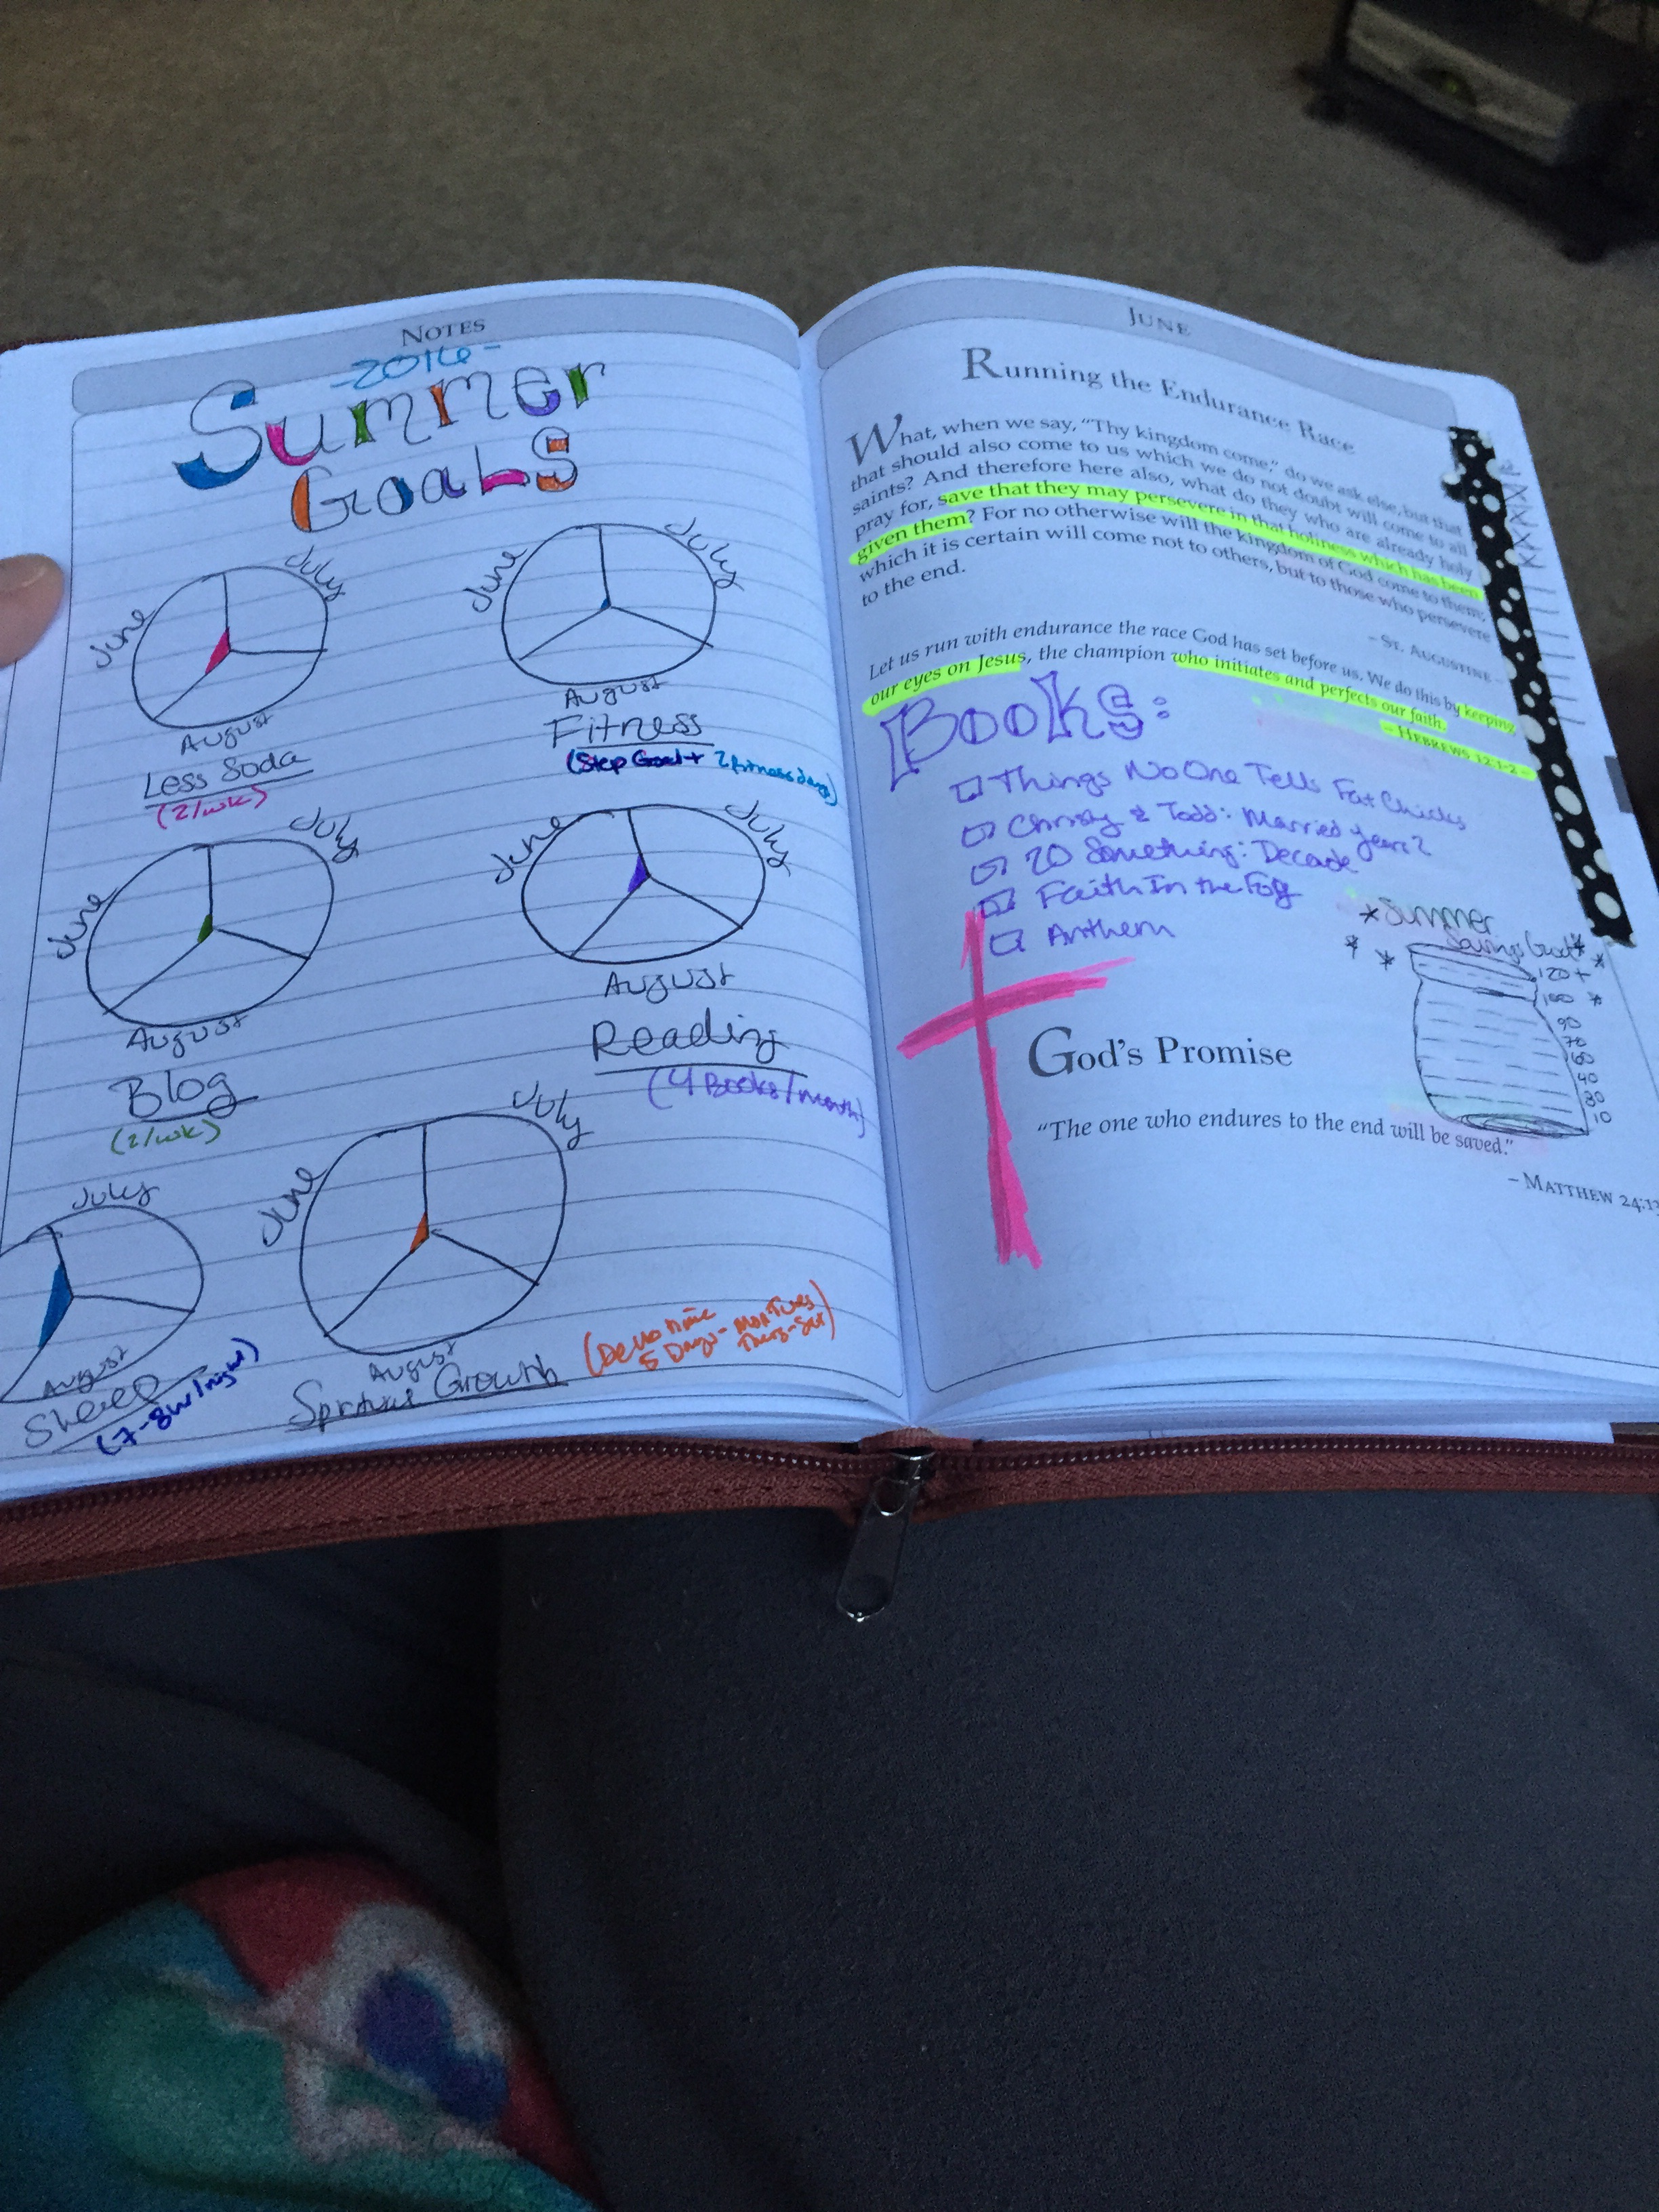 NOTES
-2016-
Summer
GoaLS
June
July
August
Less Soda
(2/wk)
June
July
August
Fitness
(Step Goal + 2 fitness days)
June
July
August
Blog
(2/wk)
June
July
August
Reading
(4 Books/month)
July
August
Sleep
June
July
August
Growth
5 Days-
JUNE
Running the Endurance Race
What, when we say, "Thy kingdom come," do we ask else, but that
that should also come to us which we do not doubt will come to all
saints? And therefore here also, what do they who are already holy
pray for, save that they may persevere in that holiness which has been
given them? For no otherwise will the kingdom of God come to them,
which it is certain will come not to others, but to those who persevere
to the end.
– ST. AUGUSTINE
Let us run with endurance the race God has set before us. We do this by keeping
our eyes on Jesus, the champion who initiates and perfects our faith.
– HEBREWS 12:1-2
Books:
Things No One Tells Fat Chicks
Christy & Todd: Married Years 2
20 Something: Decade
Faith In the Fog
Anthem
*Summer
Savings Goal*
120+
100
90
70
60
40
30
10
God's Promise
"The one who endures to the end will be saved."
– MATTHEW 24:13